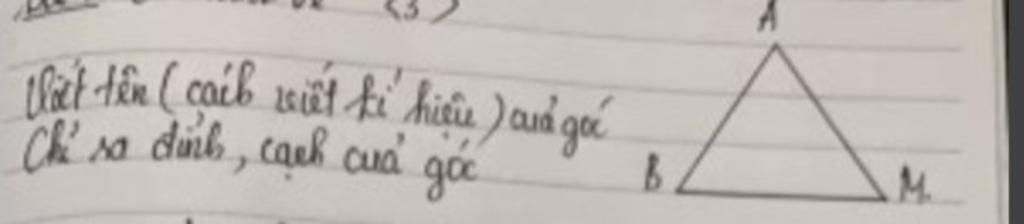 (3)
Viết tên (cách viết kí hiệu) của góc
Chỉ ra đỉnh, cạnh của góc
A
B
M